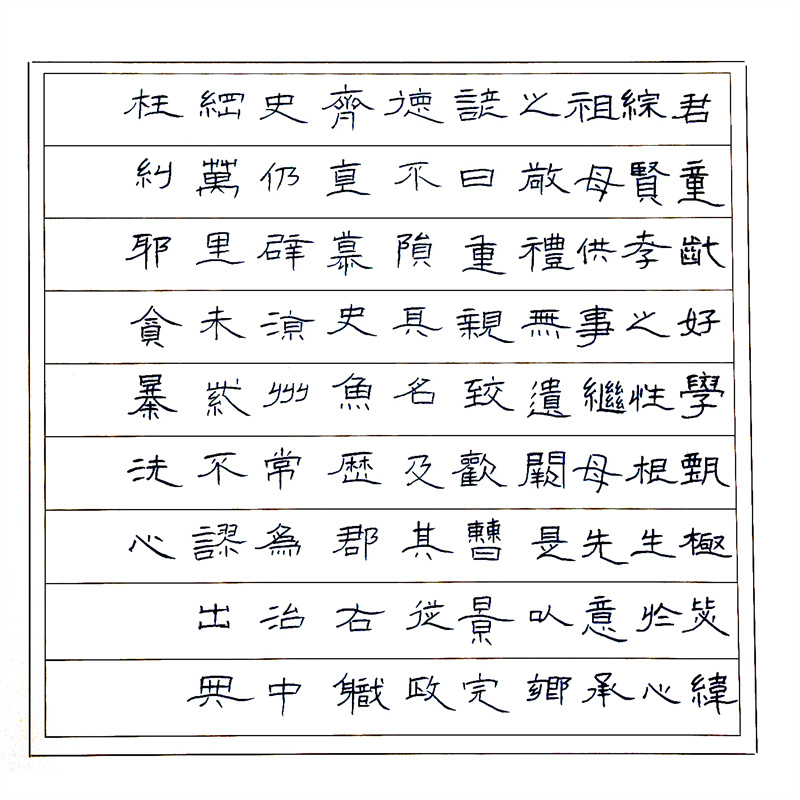 君童齔好學甄極毖緯
綜賢孝之性根生於心
祖母供事繼母先意承
之敬禮無遺闕是以鄉
諺曰重親致歡曹景完
德不隕其名及其從政
齊直慕史魚歷郡右職
史仍辟涼州常為治中
綱萬里朱紫不謬出典
枉糾邪貪暴洗心